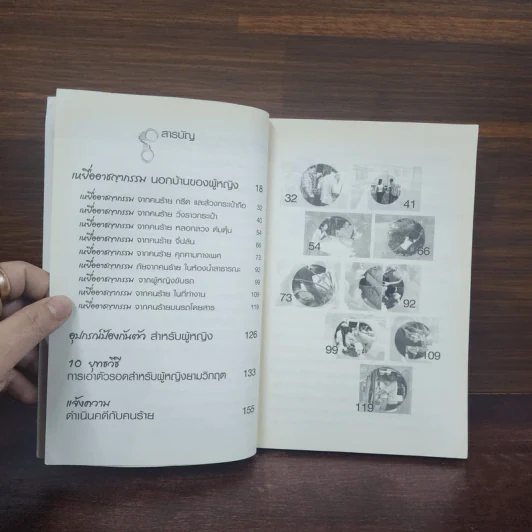 สารบัญ
เหยื่ออาชญากรรม นอกบ้านของผู้หญิง 18
เหยื่ออาชญากรรม จากคนร้าย กรีด และล้วงกระเป๋าถือ 32
เหยื่ออาชญากรรม จากคนร้าย วิ่งราวกระเป๋า 41
เหยื่ออาชญากรรม จากคนร้าย หลอกลวง ต้มตุ๋น 54
เหยื่ออาชญากรรม จากคนร้าย จี้ปล้น 66
เหยื่ออาชญากรรม จากคนร้าย คุกคามทางเพศ 73
เหยื่ออาชญากรรม ภัยจากคนร้าย ในห้องน้ำสาธารณะ 92
เหยื่ออาชญากรรม จากผู้หญิงขับรถ 99
เหยื่ออาชญากรรม จากคนร้าย ในที่ทำงาน 109
เหยื่ออาชญากรรม จากคนร้ายบนรถโดยสาร 119
อุปกรณ์ป้องกันตัว สำหรับผู้หญิง 126
10 ยุทธวิธี
การเอาตัวรอดสำหรับผู้หญิงยามวิกฤต 133
แจ้งความ
ดำเนินคดีกับคนร้าย 155
32 41
54 66
73 92
99 109
119